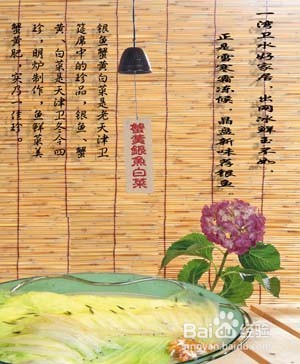 一湾卫水好家居，出网冰鲜玉不如，
正是雪寒霜冻候，晶盘新味荐银鱼
蟹黃銀魚白菜
银鱼蟹黄白菜是老天津卫
筵席中的珍品，银鱼、蟹
黄、白菜是天津卫冬令四
珍，明炉制作，鱼鲜菜美
蟹黄肥，实乃一佳珍。
Bai 经验
jingyan.baidu.com